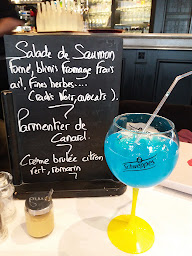 Salade de Saumon
Fumé, blinis fromage frais
ail, Fines herbes....
(Radis Noir, avocats).
?
Parmentier de
Canard.
?
Crème brulée citron
vert, romarin
Schweppes